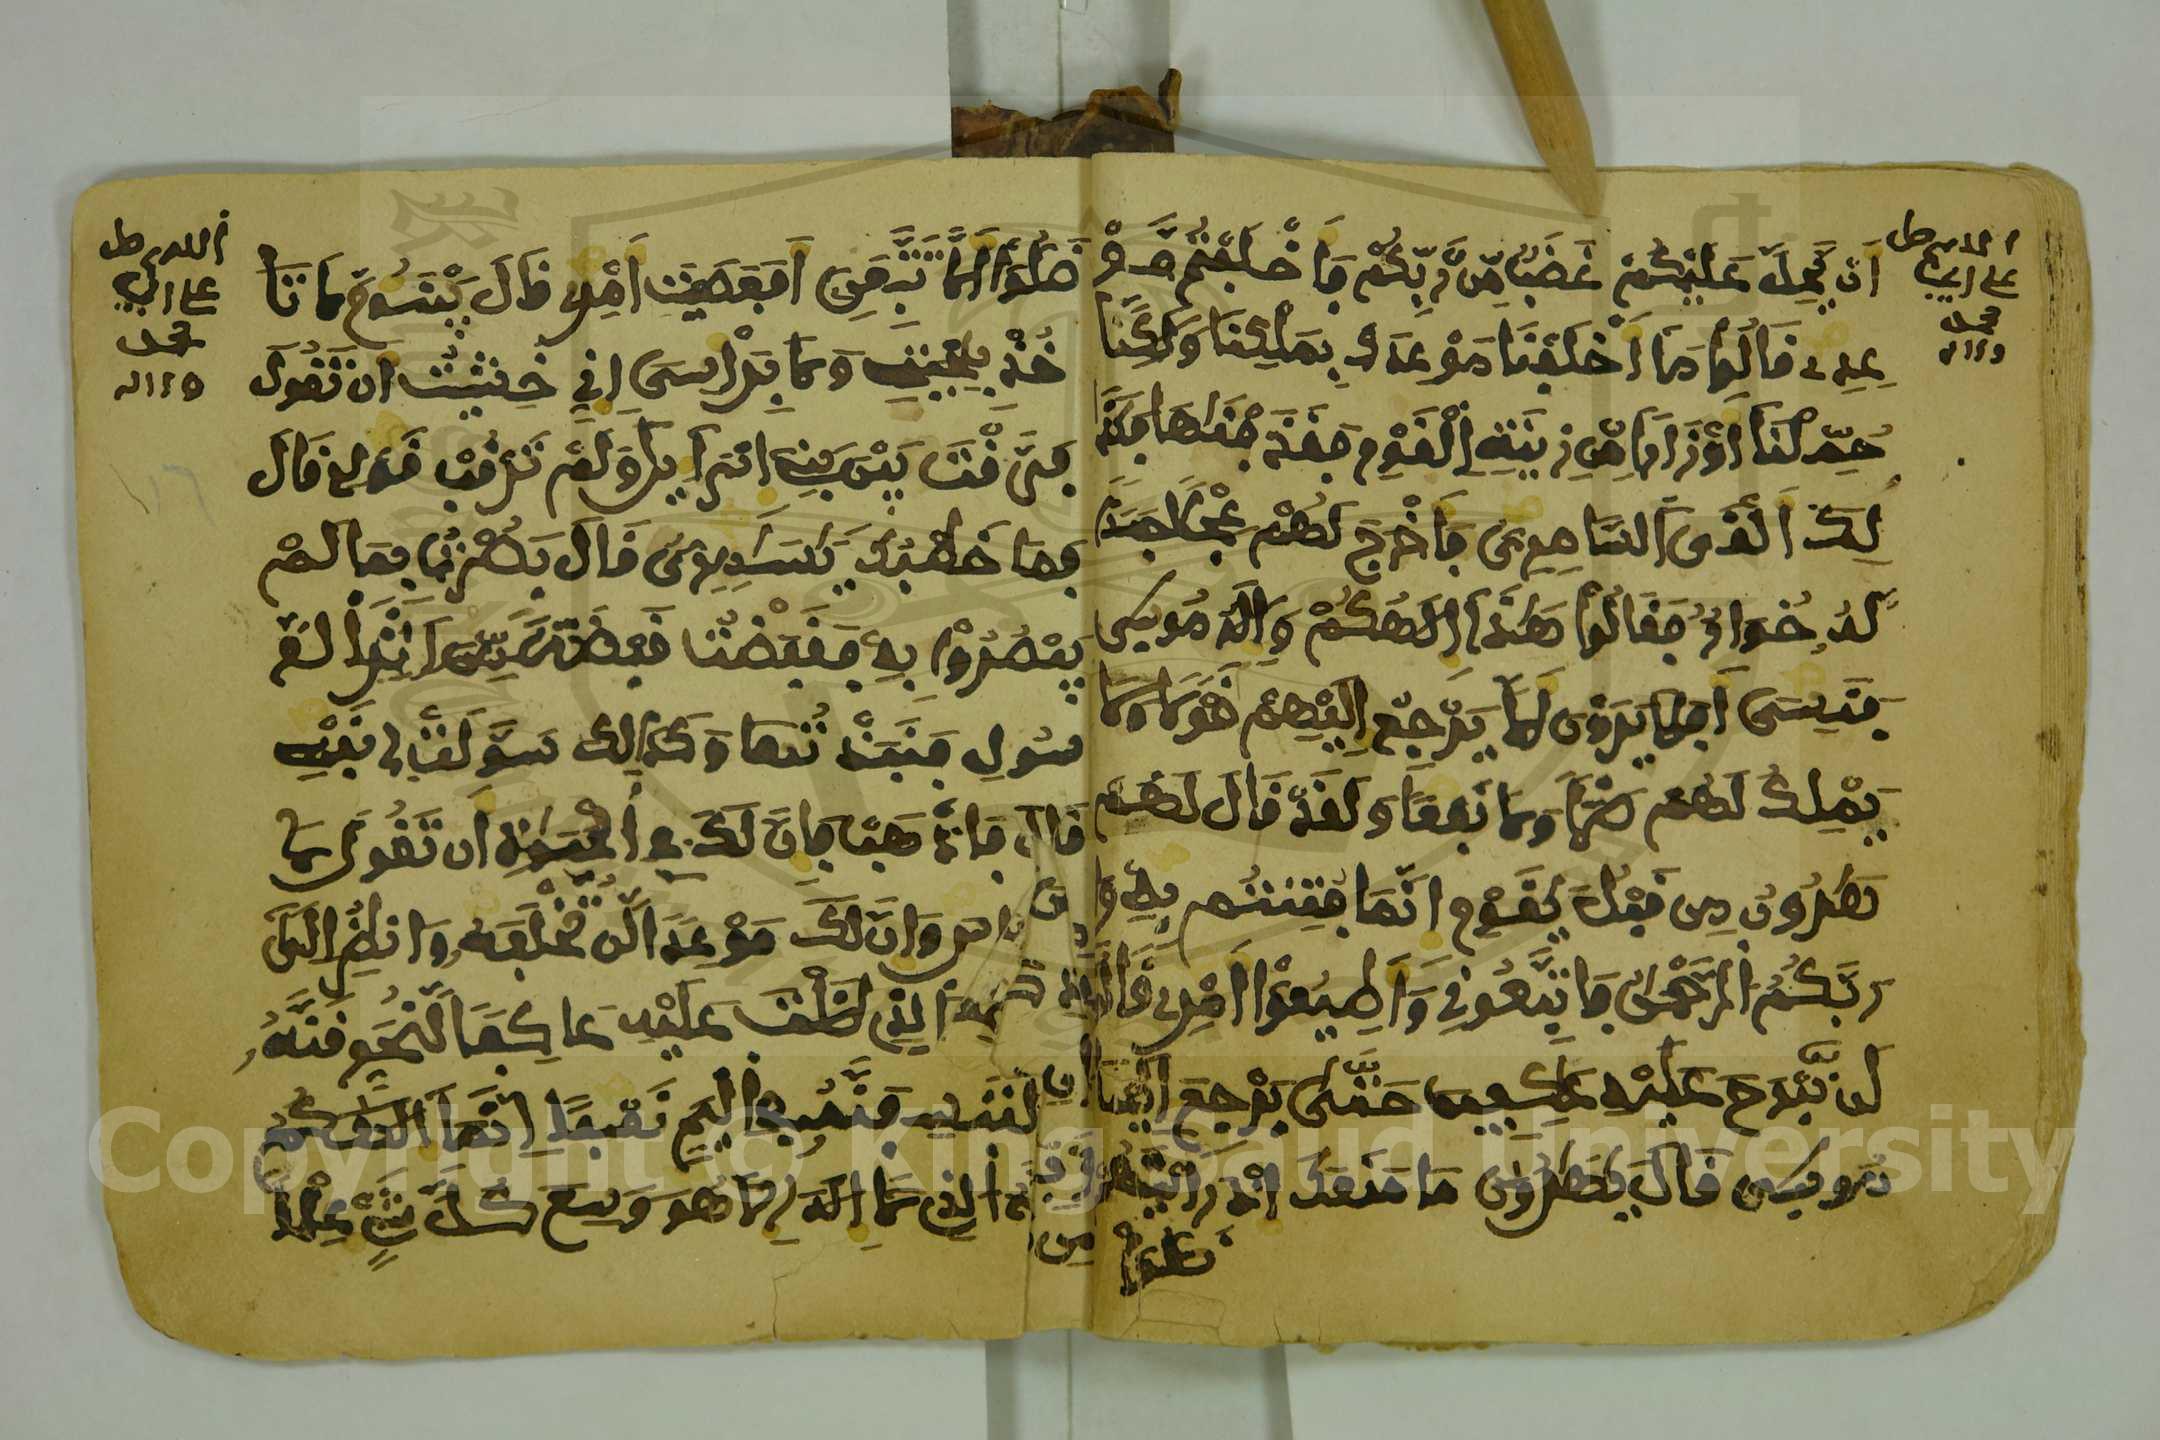 اللهم صل
على النبي
محمد
وءاله
أَن يَّحِلَّ عَلَيْكُمْ غَضَبٌ مِّن رَّبِّكُمْ فَأَخْلَفْتُم مَّوْ
عِدِي قَالُوا مَا أَخْلَفْنَا مَوْعِدَكَ بِمَلْكِنَا وَلَٰكِنَّا
حُمِّلْنَا أَوْزَارًا مِّن زِينَةِ الْقَوْمِ فَقَذَفْنَٰهَا فَكَذَٰ
لِكَ أَلْقَى السَّامِرِيُّ فَأَخْرَجَ لَهُمْ عِجْلًا جَسَدًا
لَّهُ خُوَارٌ فَقَالُوا هَٰذَا إِلَٰهُكُمْ وَإِلَٰهُ مُوسَىٰ
فَنَسِيَ أَفَلَا يَرَوْنَ أَلَّا يَرْجِعُ إِلَيْهِمْ قَوْلًا وَلَا
يَمْلِكُ لَهُمْ ضَرًّا وَلَا نَفْعًا وَلَقَدْ قَالَ لَهُمْ
هَٰرُونُ مِن قَبْلُ يَٰقَوْمِ إِنَّمَا فُتِنتُم بِهِ وَإِنَّ
رَبَّكُمُ الرَّحْمَٰنُ فَاتَّبِعُونِي وَأَطِيعُوا أَمْرِي قَالُوا
لَن نَّبْرَحَ عَلَيْهِ عَٰكِفِينَ حَتَّىٰ يَرْجِعَ إِلَيْنَا
مُوسَىٰ قَالَ يَٰهَٰرُونُ مَا مَنَعَكَ إِذْ رَأَيْتَهُمْ
ضَلُّوا
اللهم صل
على النبي
محمد
وءاله
ضَلُّوا أَلَّا تَتَّبِعَنِ أَفَعَصَيْتَ أَمْرِي قَالَ يَبْنَؤُمَّ لَا تَا
خُذْ بِلِحْيَتِي وَلَا بِرَأْسِي إِنِّي خَشِيتُ أَن تَقُولَ
فَرَّقْتَ بَيْنَ بَنِي إِسْرَٰءِيلَ وَلَمْ تَرْقُبْ قَوْلِي قَالَ
فَمَا خَطْبُكَ يَٰسَٰمِرِيُّ قَالَ بَصُرْتُ بِمَا لَمْ
يَبْصُرُوا بِهِ فَقَبَضْتُ قَبْضَةً مِّنْ أَثَرِ الرَّ
سُولِ فَنَبَذْتُهَا وَكَذَٰلِكَ سَوَّلَتْ لِي نَفْسِي
قَالَ فَاذْهَبْ فَإِنَّ لَكَ فِي الْحَيَوٰةِ أَن تَقُولَ لَا
مِسَاسَ وَإِنَّ لَكَ مَوْعِدًا لَّن تُخْلَفَهُ وَانظُرْ إِلَىٰ
إِلَٰهِكَ الَّذِي ظَلْتَ عَلَيْهِ عَاكِفًا لَّنُحَرِّقَنَّهُ
ثُمَّ لَنَنسِفَنَّهُ فِي الْيَمِّ نَسْفًا إِنَّمَا إِلَٰهُكُمُ
اللَّهُ الَّذِي لَا إِلَٰهَ إِلَّا هُوَ وَسِعَ كُلَّ شَيْءٍ عِلْمًا
Copyright © King Saud University